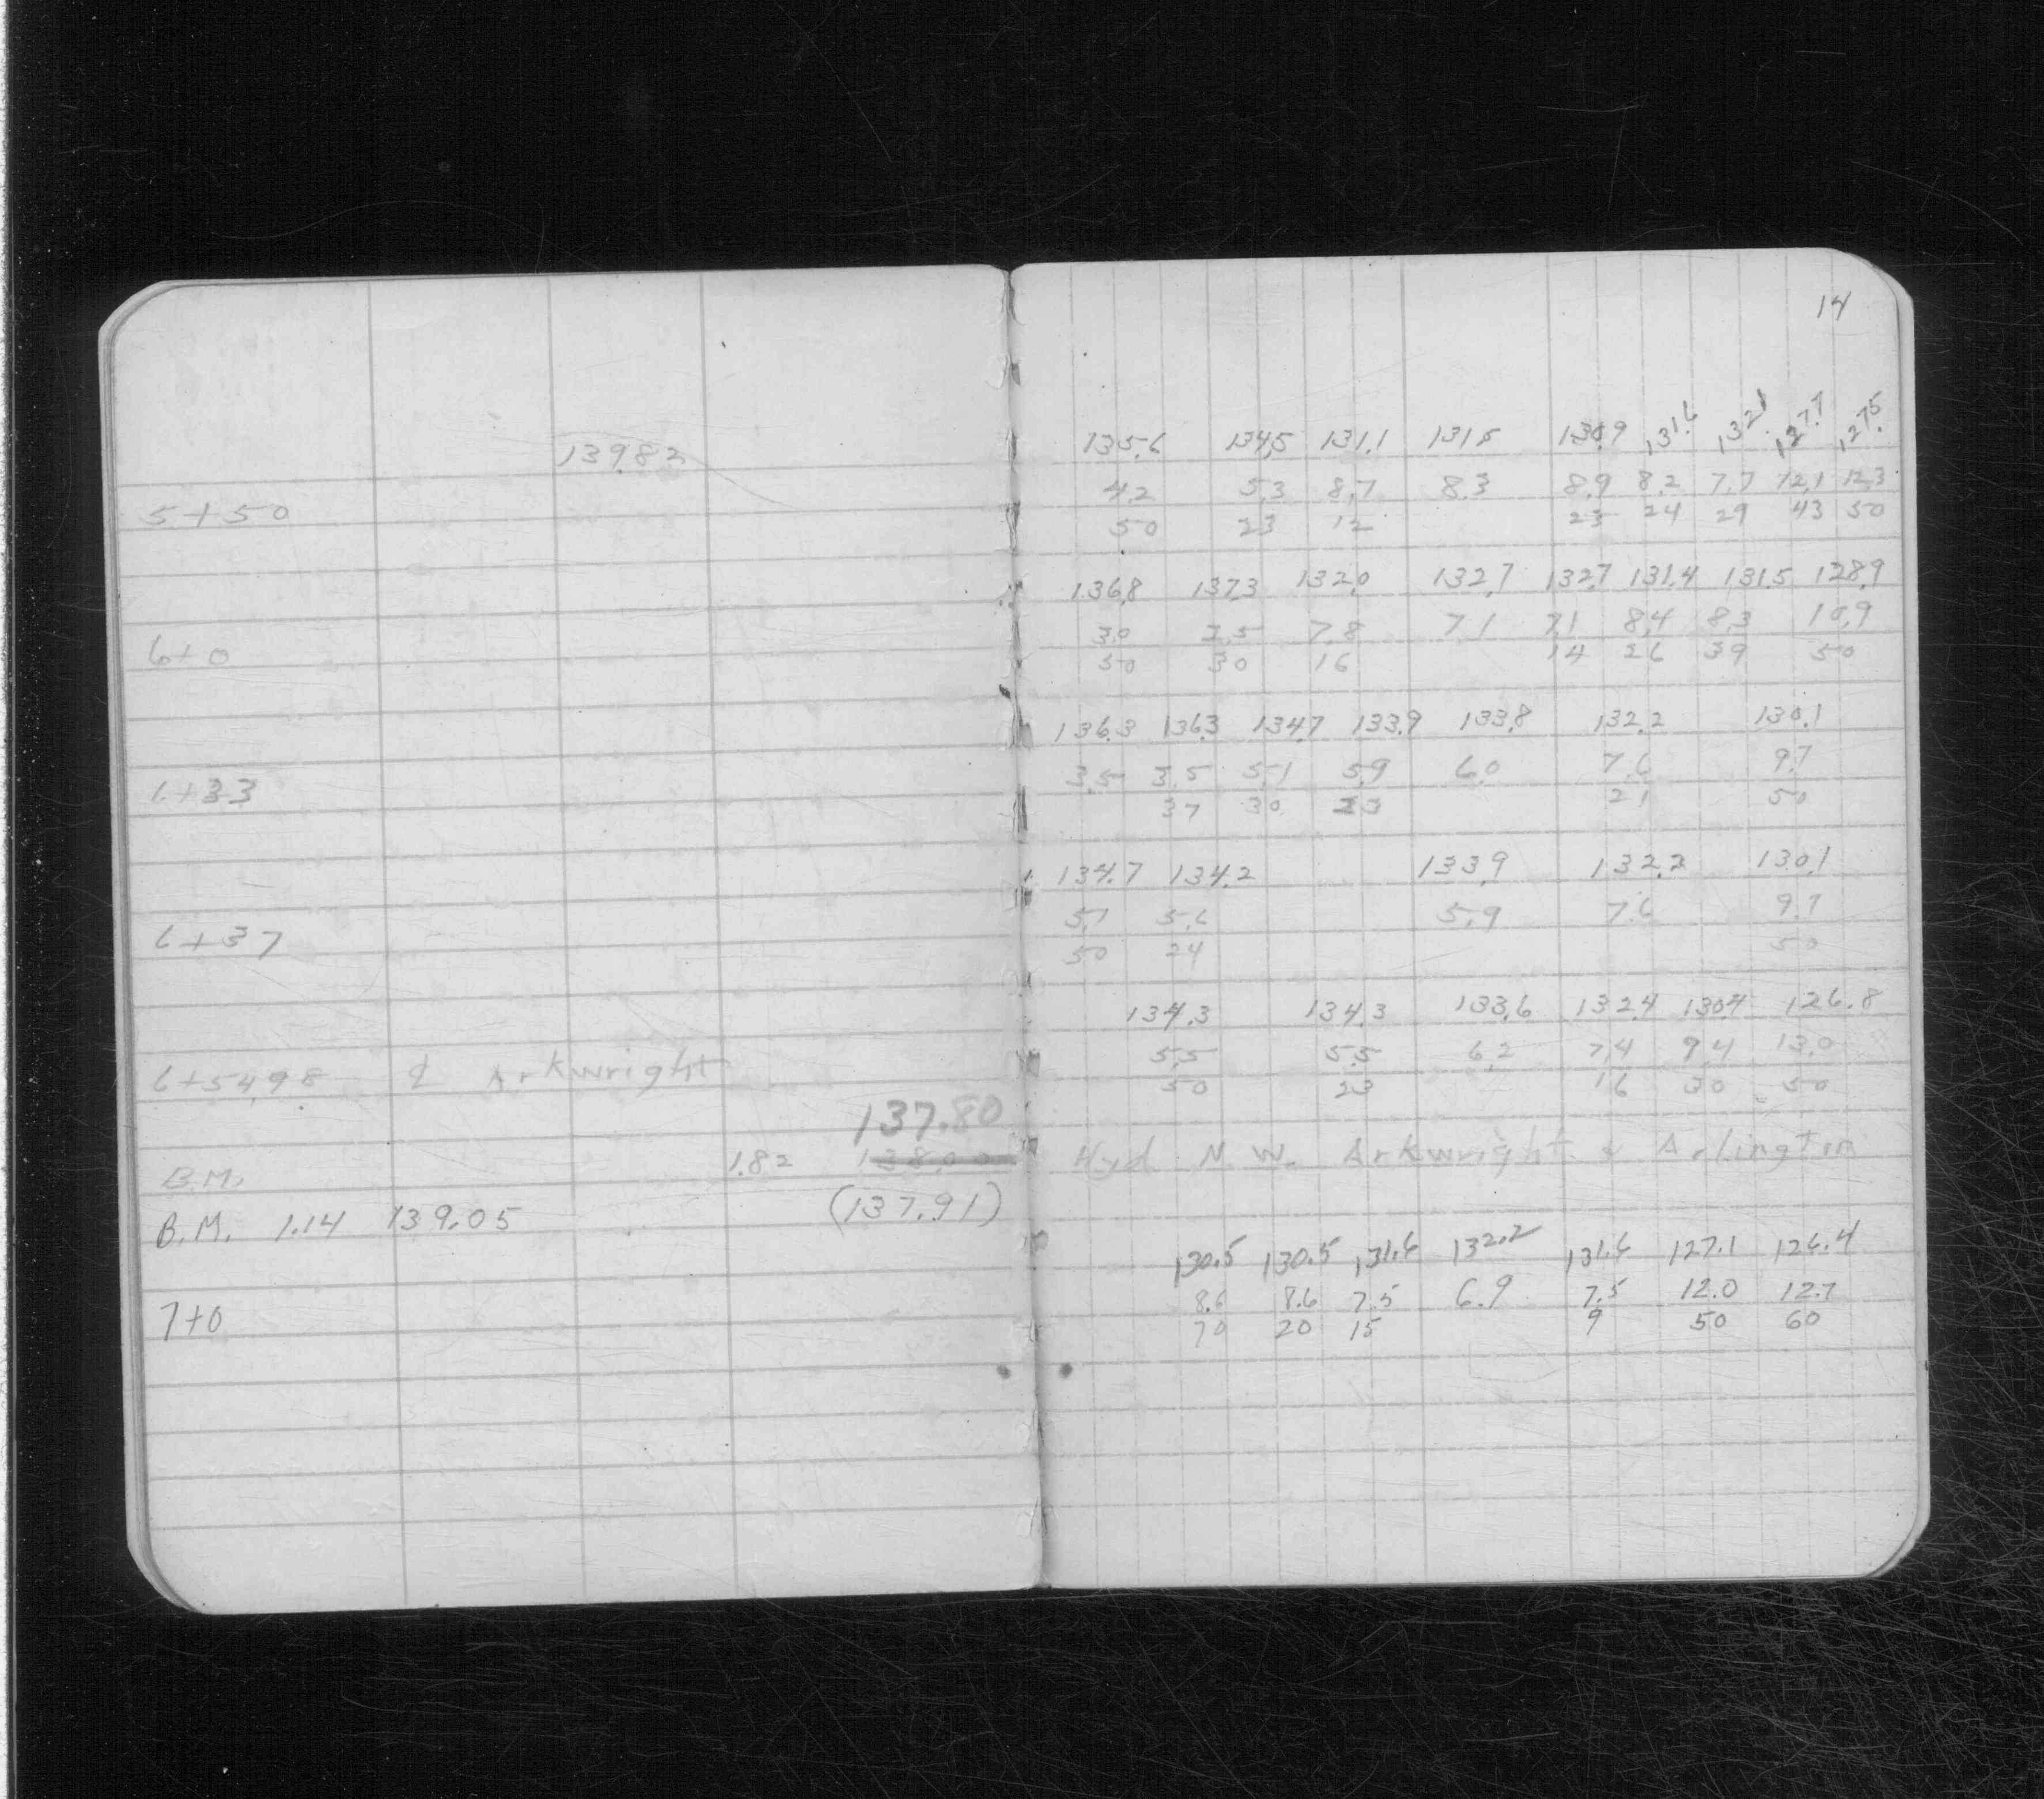 139.82
5+50
6+0
6+33
6+37
6+54.98 ₵ Arkwright
137.80
B.M. 1.82 138.00
B.M. 1.14 139.05 (137.91)
7+0
14
135.6 134.5 131.1 131.5 130.9 131.6 132.1 127.7 127.5
4.2 5.3 8.7 8.3 8.9 8.2 7.7 12.1 12.3
50 23 12 23 24 29 43 50
136.8 137.3 132.0 132.7 132.7 131.4 131.5 128.9
3.0 2.5 7.8 7.1 7.1 8.4 8.3 10.9
50 30 16 14 26 39 50
136.3 136.3 134.7 133.9 133.8 132.2 130.1
3.5 3.5 5.1 5.9 6.0 7.6 9.7
37 30 23 21 50
134.7 134.2 133.9 132.2 130.1
5.1 5.6 5.9 7.6 9.7
50 24 50
134.3 134.3 133.6 132.4 130.4 126.8
5.5 5.5 6.2 7.4 9.4 13.0
50 23 16 30 50
Hyd N.W. Arkwright & Arlington
130.5 130.5 131.6 132.2 131.6 127.1 126.4
8.6 8.6 7.5 6.9 7.5 12.0 12.7
70 20 15 9 50 60